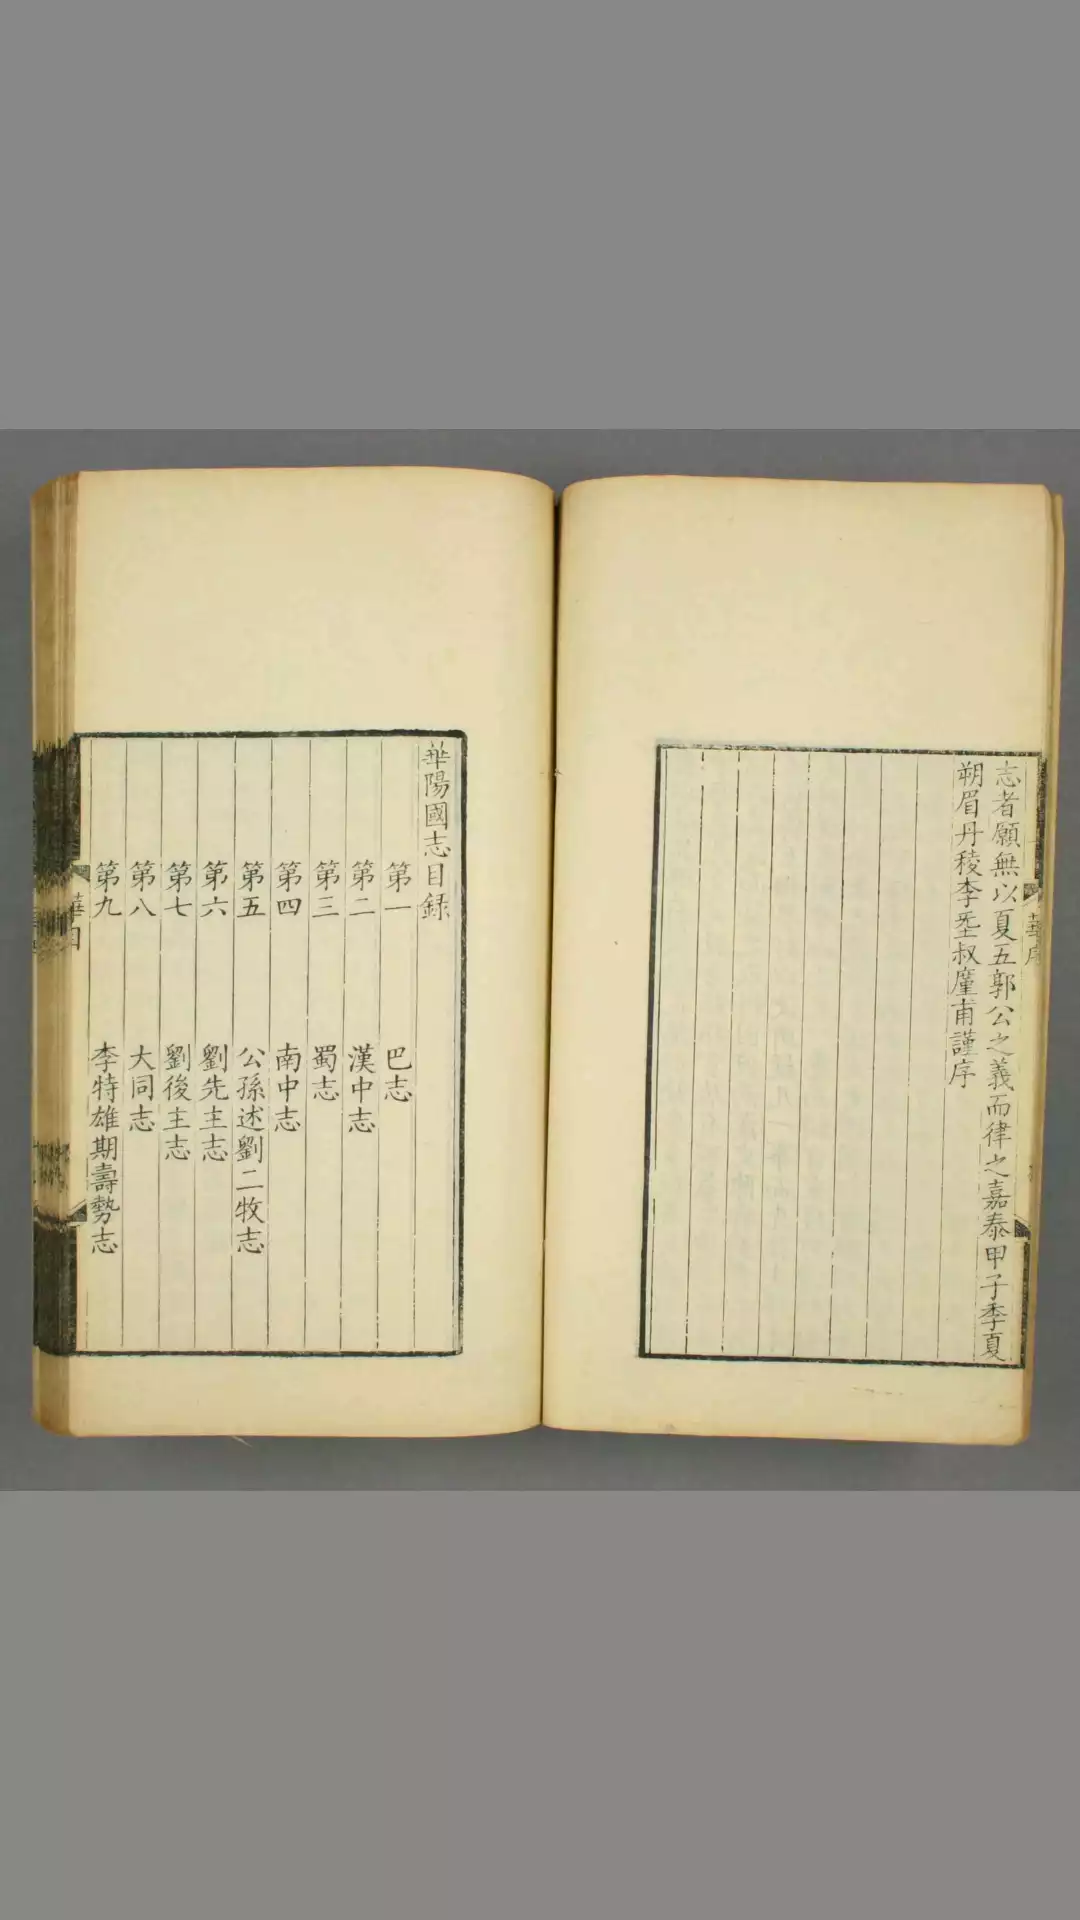 志者願無以夏五郭公之義而律之嘉泰甲子季夏
朔眉丹稜李𡌴叔廑甫謹序
華序
華陽國志目録
第一 巴志
第二 漢中志
第三 蜀志
第四 南中志
第五 公孫述劉二牧志
第六 劉先主志
第七 劉後主志
第八 大同志
第九 李特雄期壽勢志
華目